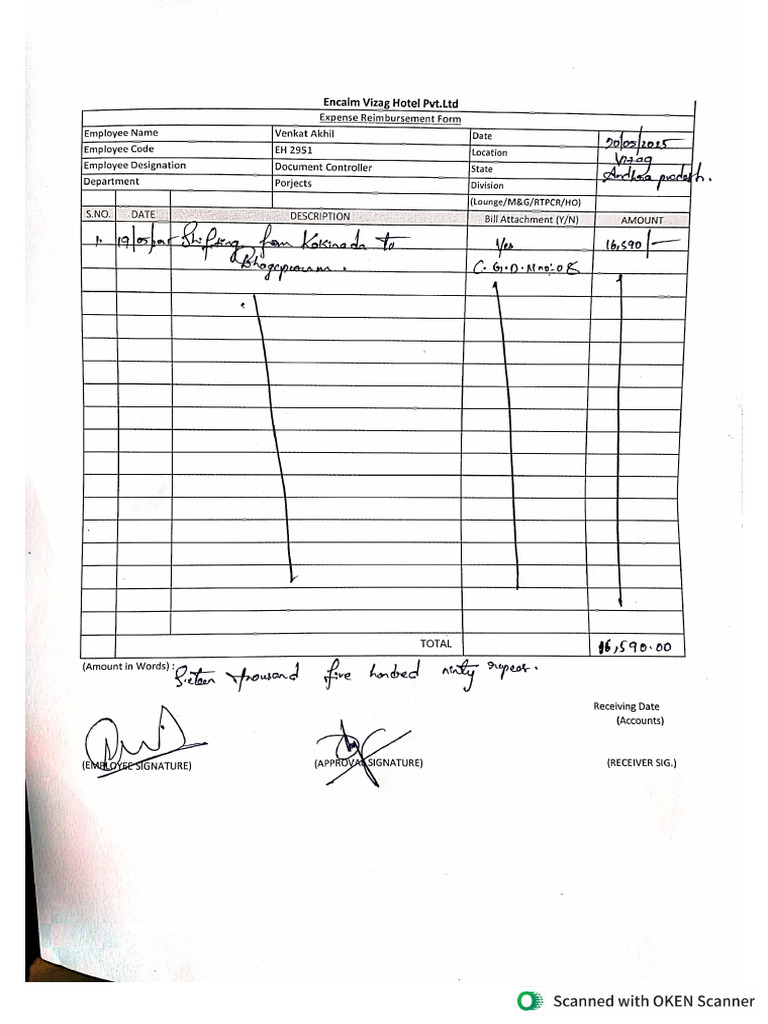 Encalm Vizag Hotel Pvt.Ltd
Expense Reimbursement Form
Employee Name Venkat Akhil Date 20/05/2025
Employee Code EH 2951 Location Vizag
Employee Designation Document Controller State Andhra pradesh.
Department Porjects Division
(Lounge/M&G/RTPCR/HO)
S.NO. DATE DESCRIPTION Bill Attachment (Y/N) AMOUNT
1. 19/05/ Shifting from Kakinada to Yes 16,590/-
Bhogapuram. C.G.D.M no:08
TOTAL 16,590.00
(Amount in Words) : Sixteen thousand five hundred ninty rupees.
Receiving Date
(Accounts)
(EMPLOYEE SIGNATURE) (APPROVAL SIGNATURE) (RECEIVER SIG.)
Scanned with OKEN Scanner